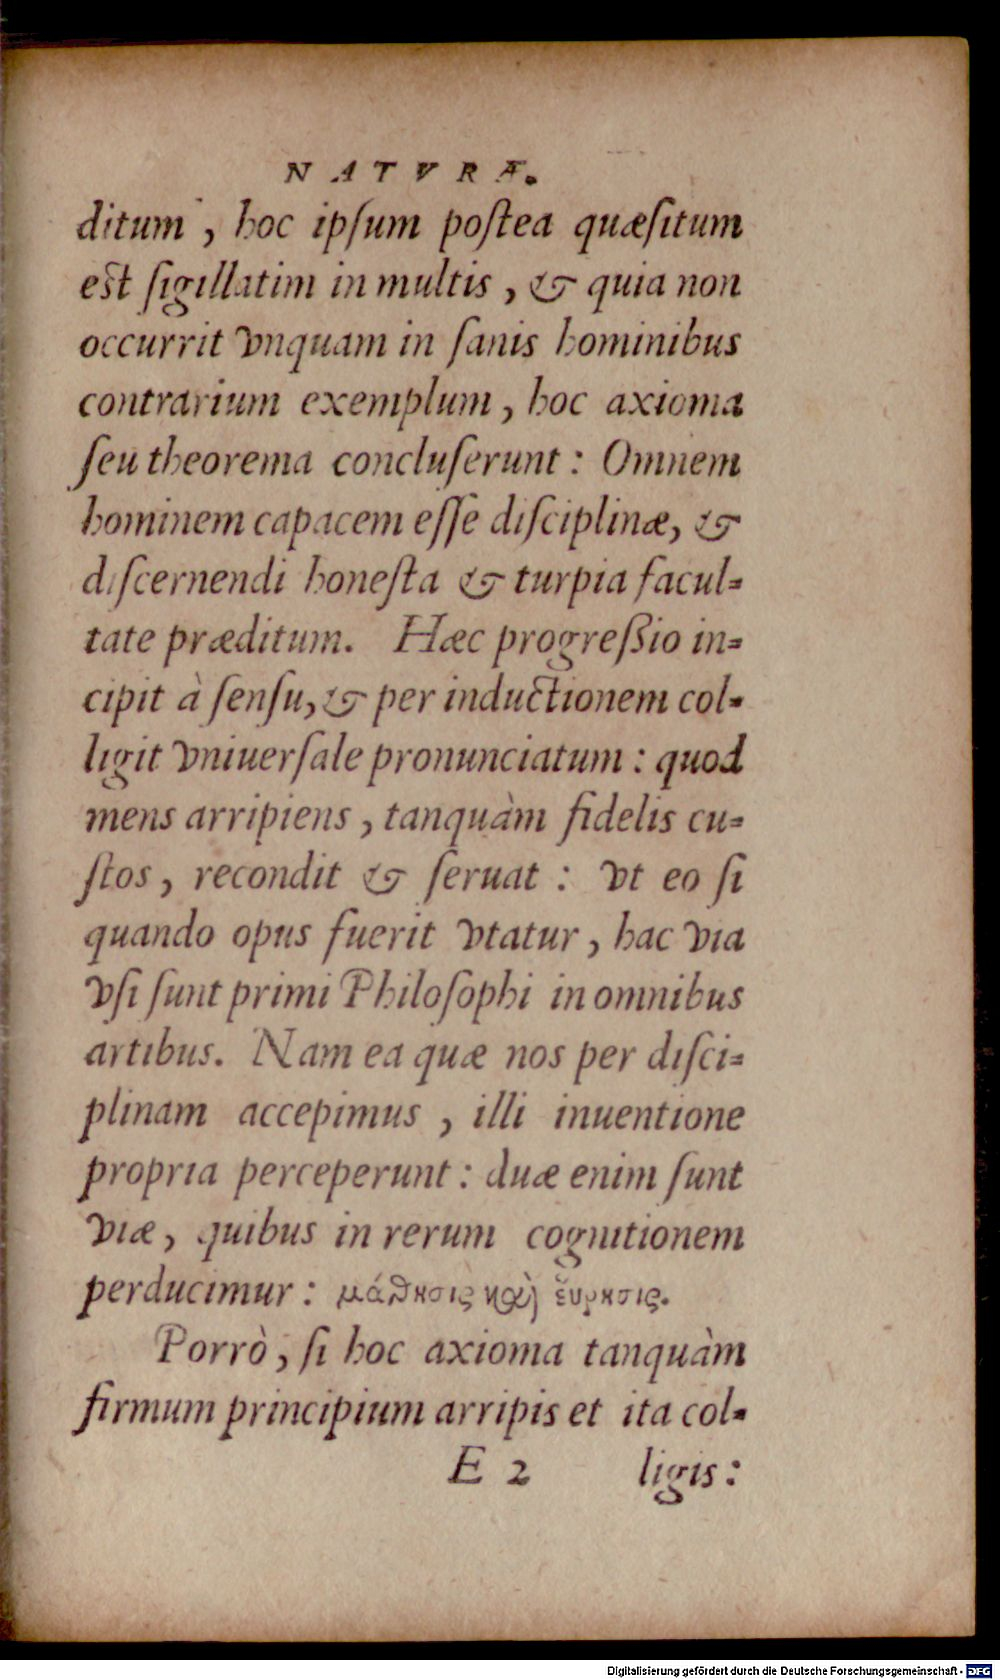 NATVRÆ.
ditum , hoc ipſum poſtea quæſitum
eſt ſigillatim in multis , & quia non
occurrit vnquam in ſanis hominibus
contrarium exemplum , hoc axioma
ſeu theorema concluſerunt : Omnem
hominem capacem eſſe diſciplinæ, &
diſcernendi honeſta & turpia facul-
tate præditum. Hæc progreßio in-
cipit à ſenſu, & per inductionem col-
ligit vniuerſale pronunciatum : quod
mens arripiens , tanquàm fidelis cu-
ſtos , recondit & ſeruat : vt eo ſi
quando opus fuerit vtatur , hac via
vſi ſunt primi Philoſophi in omnibus
artibus. Nam ea quæ nos per diſci-
plinam accepimus , illi inuentione
propria perceperunt : duæ enim ſunt
viæ , quibus in rerum cognitionem
perducimur : μάθησις καὶ εὕρησις.
Porrò , ſi hoc axioma tanquàm
firmum principium arripis et ita col-
E 2 ligis :
Digitalisierung gefördert durch die Deutsche Forschungsgemeinschaft - DFG